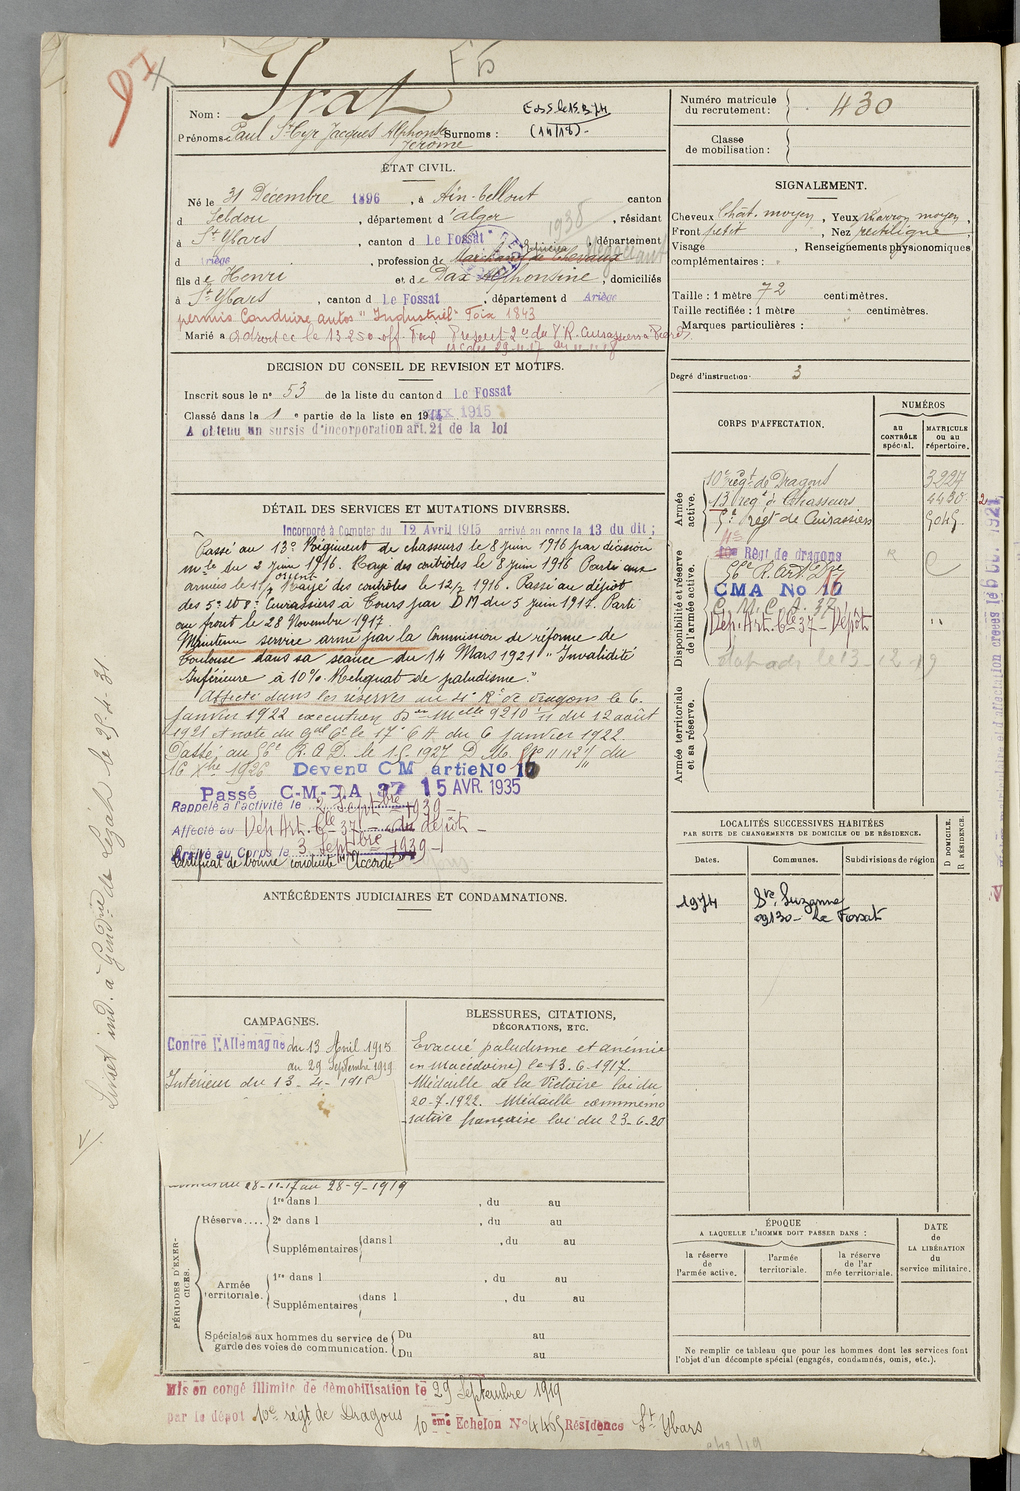 97
Nom : Prat
Prénoms : Paul St Cyr Jacques Alphonse Surnoms :
Jérôme
(14/18) -
ÉTAT CIVIL.
Né le 31 Décembre 1896, à Aïn-tellout canton
d Sebdou, département d'alger, résidant
à St Ybars, canton d Le Fossat, département
d Ariège, profession de Marchand de chevaux
1938
Négociant
fils de Henri et de Dax Alphonsine, domiciliés
à St Ybars, canton d Le Fossat, département d Ariège
permis Conduire autos "Industriel" Foix 1843
Marié à
DÉCISION DU CONSEIL DE REVISION ET MOTIFS.
Inscrit sous le n° 53 de la liste du canton d Le Fossat
Classé dans la 1e partie de la liste en 1915
A obtenu un sursis d'incorporation art. 21 de la loi
DÉTAIL DES SERVICES ET MUTATIONS DIVERSES.
Incorporé à Compter du 12 Avril 1915 arrivé au corps le 13 du dit ;
Passé au 13e Régiment de chasseurs le 8 juin 1916 par décision
mlle du 2 juin 1916. Raye des contrôles le 8 juin 1916 Parti aux
armées le
orient
Rayé des contrôles le 12/ 1916. Passé au dépôt
des 5e et 8e Cuirassiers à Tours par DM du 5 juin 1917. Parti
au front le 28 Novembre 1917.
Maintenu service armé par la Commission de réforme de
Toulouse dans sa séance du 14 Mars 1921 "Invalidité
inférieure à 10% Reliquat de paludisme."
Affecté dans les réserves au 4e Rt de dragons le 6
Janvier 1922 execution Don Melle 9210 1/11 du 12 août
1921 et note du Gal Ct le 17e CA du 6 janvier 1922.
Passé au 56e R.A.D. le 1-5-1927 D.M. du
16 Xbre 1926 Devenu CM artie No 17
Passé C-M-A 37 15 AVR. 1935
Rappelé à l'activité le 2 Septbre 1939 -
Affecté au Dép. Art. Cle 37 - dépôt -
Arrivé au Corps le 3 Septbre 1939 -
Certificat de bonne conduite "Accordé"
ANTÉCÉDENTS JUDICIAIRES ET CONDAMNATIONS.
CAMPAGNES.
Contre l'Allemagne du 13 Avril 1915
au 29 Septembre 1919
Intérieur du 13-4-1915
28-11-17 au 28-9-1919
BLESSURES, CITATIONS,
DÉCORATIONS, ETC.
Evacué paludisme et anémie
en Macédoine) le 13.6.1917.
Médaille de la Victoire loi du
20-7-1922. Médaille commémo
rative française loi du 23-6-20
PÉRIODES D'EXERCICES.
Réserve....
1re dans l , du au
2e dans l , du au
Supplémentaires dans l , du au
Armée territoriale.
1re dans l , du au
Supplémentaires dans l , du au
Spéciales aux hommes du service de
garde des voies de communication.
Du au
Du au
Mis en congé illimité de démobilisation le 29 Septembre 1919
par le dépôt 10e régt de Dragons 10ème Echelon N° 4465 Résidence St Ybars
Numéro matricule
du recrutement : 430
Classe
de mobilisation :
SIGNALEMENT.
Cheveux Chât. moyen, Yeux Marron moyen,
Front petit, Nez rectiligne,
Visage , Renseignements physionomiques
complémentaires :
Taille : 1 mètre 72 centimètres.
Taille rectifiée : 1 mètre centimètres.
Marques particulières :
Degré d'instruction 3
CORPS D'AFFECTATION.
NUMÉROS
au
CONTRÔLE
spécial.
MATRICULE
ou au
répertoire.
Armée
active.
10e régt de Dragons 3227
13 regt de Chasseurs 4480
5e regt de Cuirassiers 5045
Disponibilité et réserve
de l'armée active.
Régt de dragons
56e R. Art
CMA No 17
C.M.C.A. 37
Dép. Art. Cle 37 - Dépôt
Armée territoriale
et sa réserve.
LOCALITÉS SUCCESSIVES HABITÉES
PAR SUITE DE CHANGEMENTS DE DOMICILE OU DE RÉSIDENCE.
Dates. Communes. Subdivisions de région
D DOMICILE.
R RÉSIDENCE.
1974 Ste Suzanne
09130 - Le Fossat
ÉPOQUE
A LAQUELLE L'HOMME DOIT PASSER DANS :
la réserve
de
l'armée active.
l'armée
territoriale.
la réserve
de l'ar
mée territoriale.
DATE
de
LA LIBÉRATION
du
service militaire.
Ne remplir ce tableau que pour les hommes dont les services font
l'objet d'un décompte spécial (engagés, condamnés, omis, etc.).